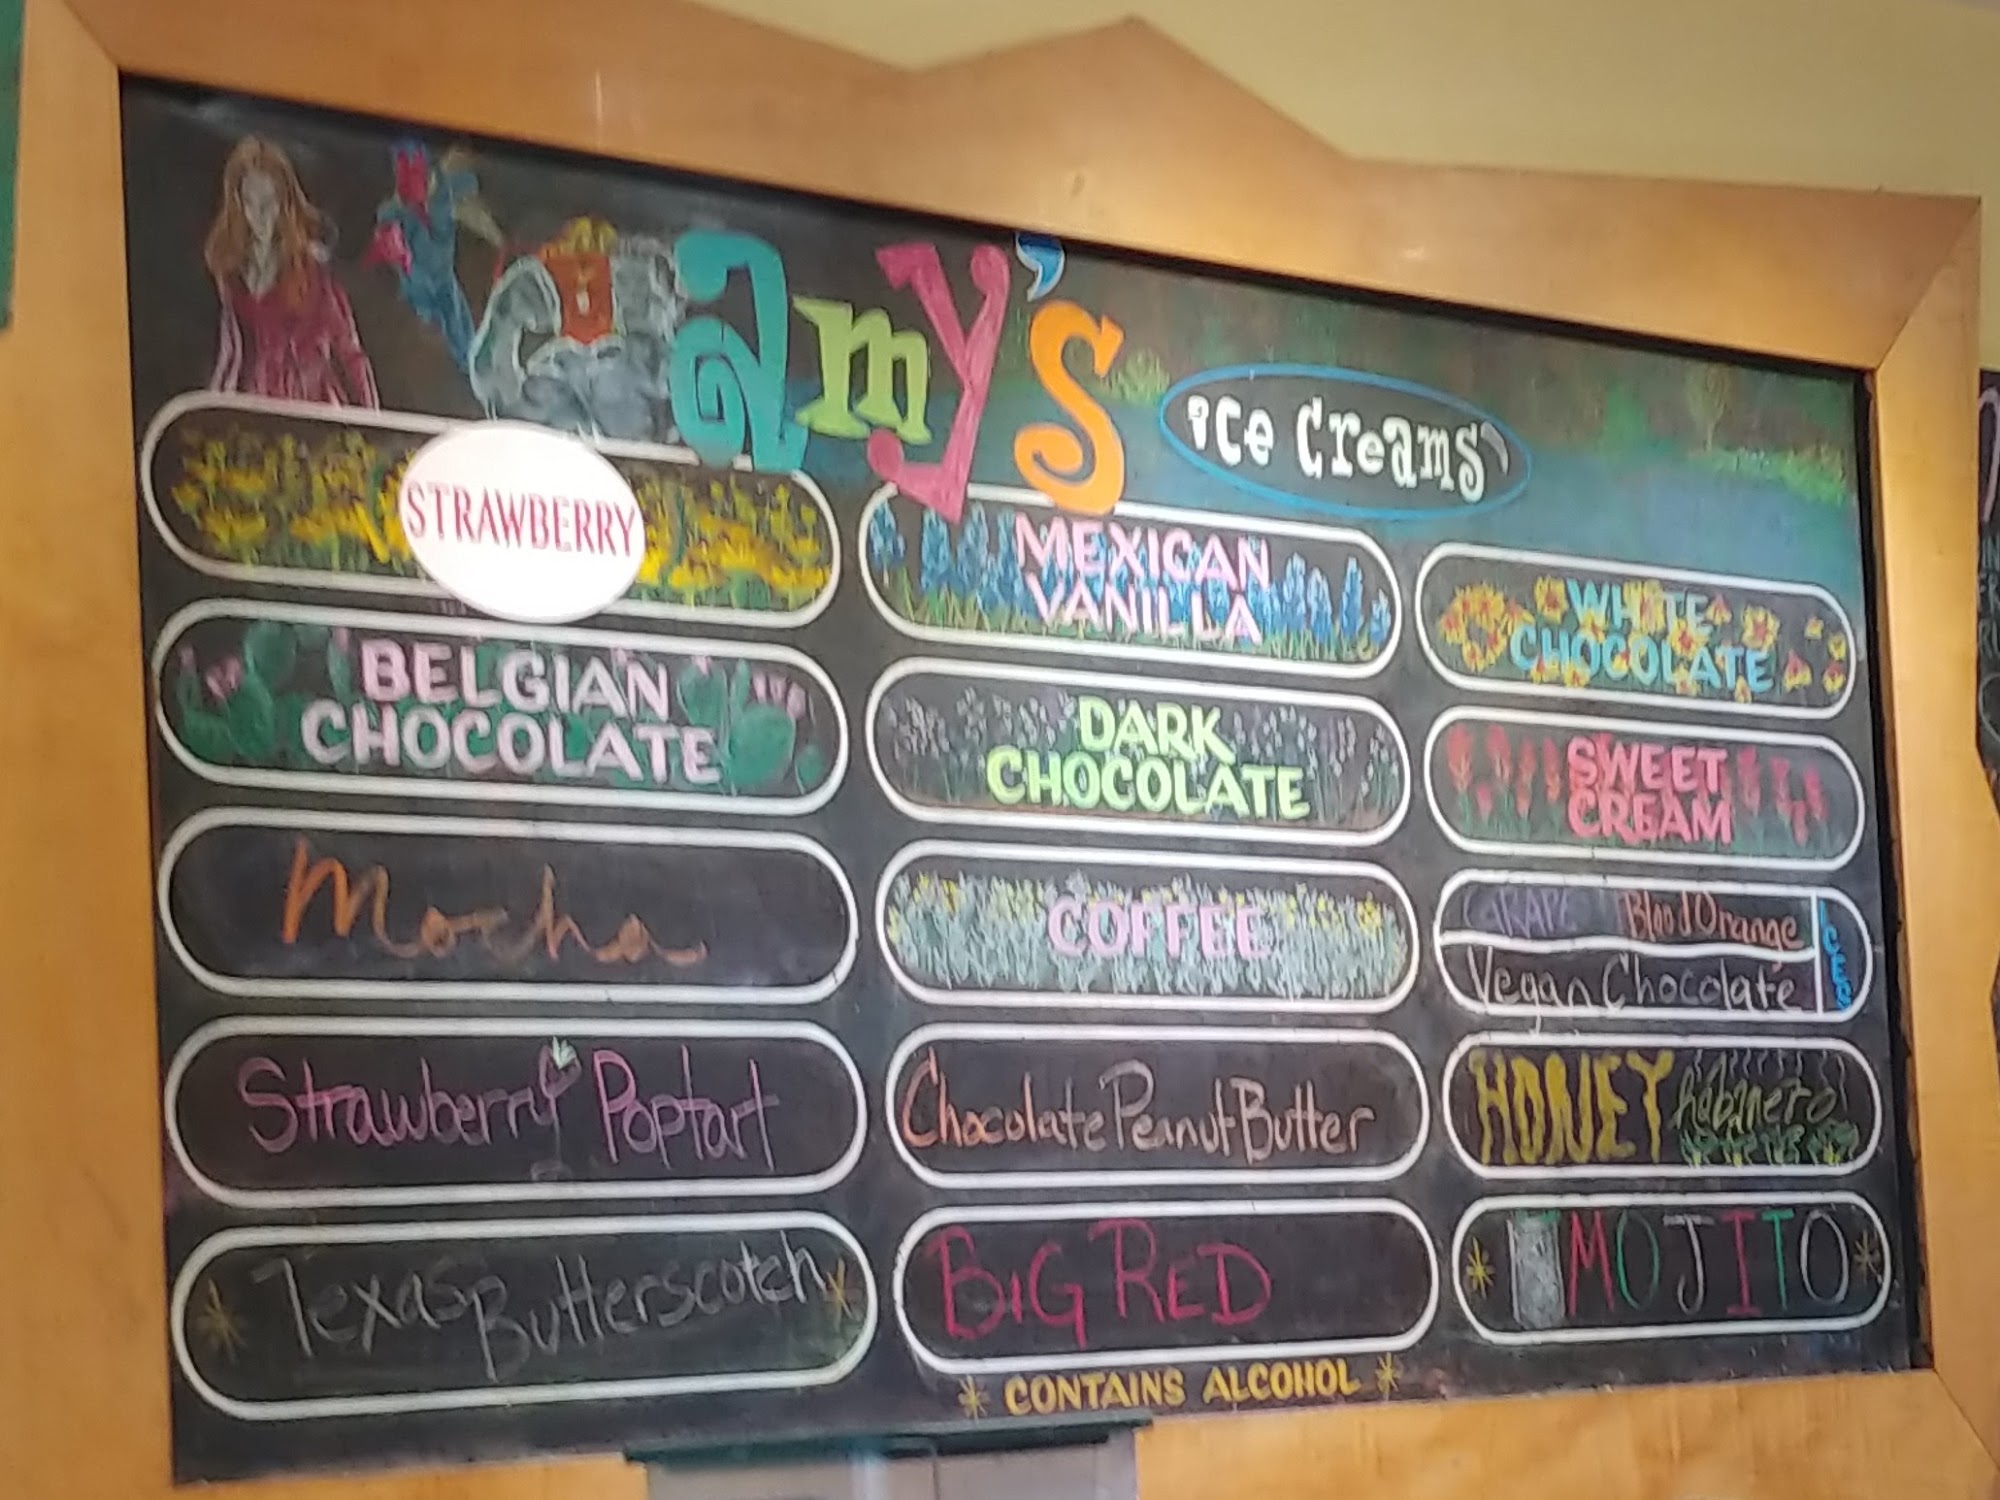 amy's
ice creams
STRAWBERRY
MEXICAN
VANILLA
WHITE
CHOCOLATE
BELGIAN
CHOCOLATE
DARK
CHOCOLATE
SWEET
CREAM
Mocha
COFFEE
GRAPE Blood Orange
Vegan Chocolate
ICES
Strawberry Poptart
Chocolate Peanut Butter
HONEY habanero
* Texas Butterscotch *
BIG RED
* MOJITO *
* CONTAINS ALCOHOL *